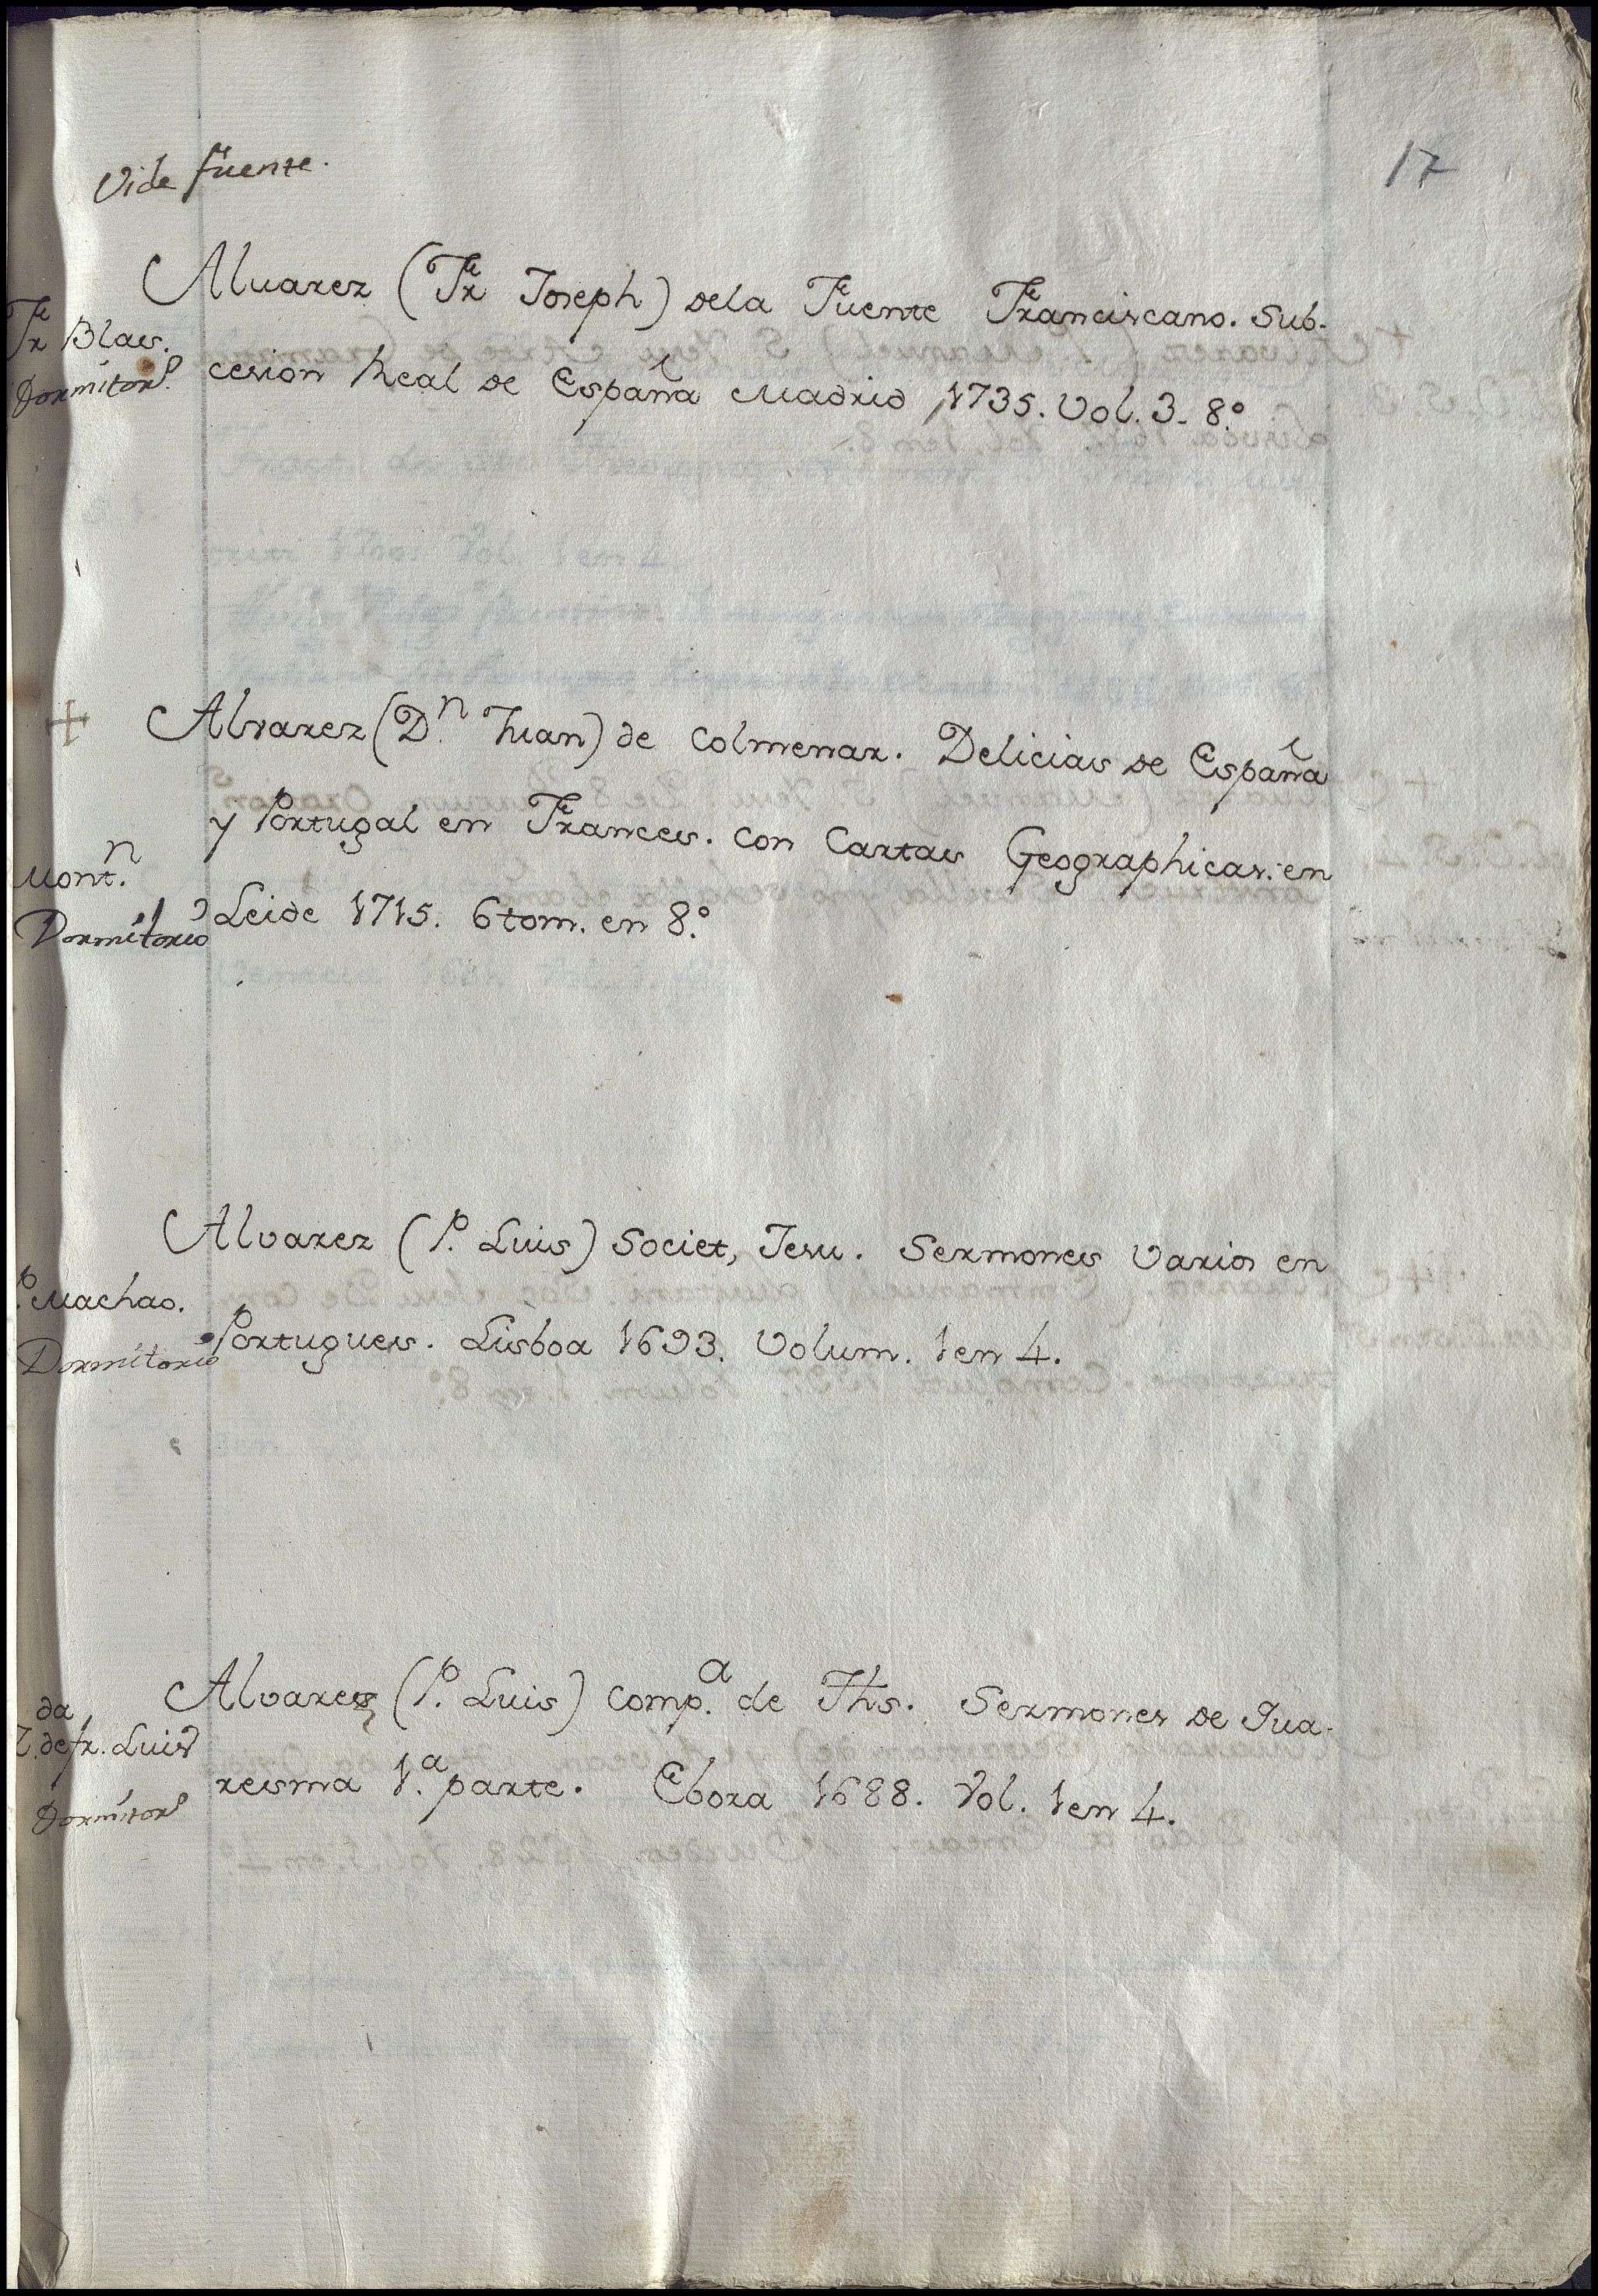 17
Vide fuente.
Aluarez (Fr Joseph) dela Fuente Franciscano. Sub-
Fr Blas.
cesion Real de España Madrid 1735. Vol. 3. 8.º
Dormitorº.
+ Alvarez (D.n Juan) de Colmenar. Delicias de España
y Portugal en Frances. con Cartas Geographicas. en
Mont.n
Leide 1715. 6 tom. en 8.º
Dormitorio
Alvarez (P. Luis) Societ, Jesu. Sermones varios en
P. Machao.
Portugues. Lisboa 1693. Volum. 1 en 4.
Dormitorio
Alvarez (P. Luis) Comp.a de Jhs. Sermones de Qua-
de fr. Luis
resma 1.a parte. Ebora 1688. Vol. 1 en 4.
Dormitorº